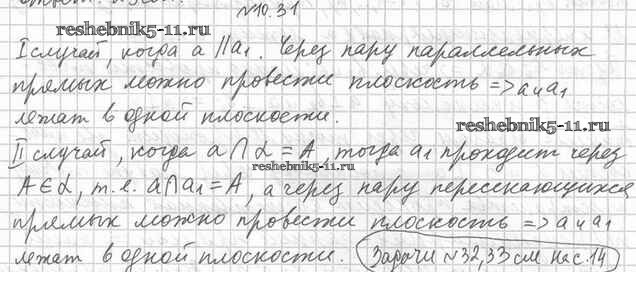 №10.31
reshebnik5-11.ru
I случай, когда a || a₁. Через пару параллельных
прямых можно провести плоскость => a и a₁
лежат в одной плоскости.
reshebnik5-11.ru
II случай, когда a ∩ α = A, тогда a₁ проходит через
reshebnik5-11.ru
A ∈ α, т.е. a ∩ a₁ = A, а через пару пересекающихся
прямых можно провести плоскость => a и a₁
лежат в одной плоскости. Задачи №32,33 см. на с. 14